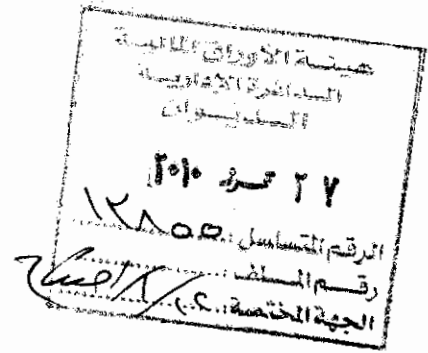 هيئة الأوراق المالية
الدائرة الإدارية
الديوان
٢٧ تموز ٢٠١٠
الرقم المتسلسل: ١٢٨٥٥
رقم الملف
الجهة المختصة: